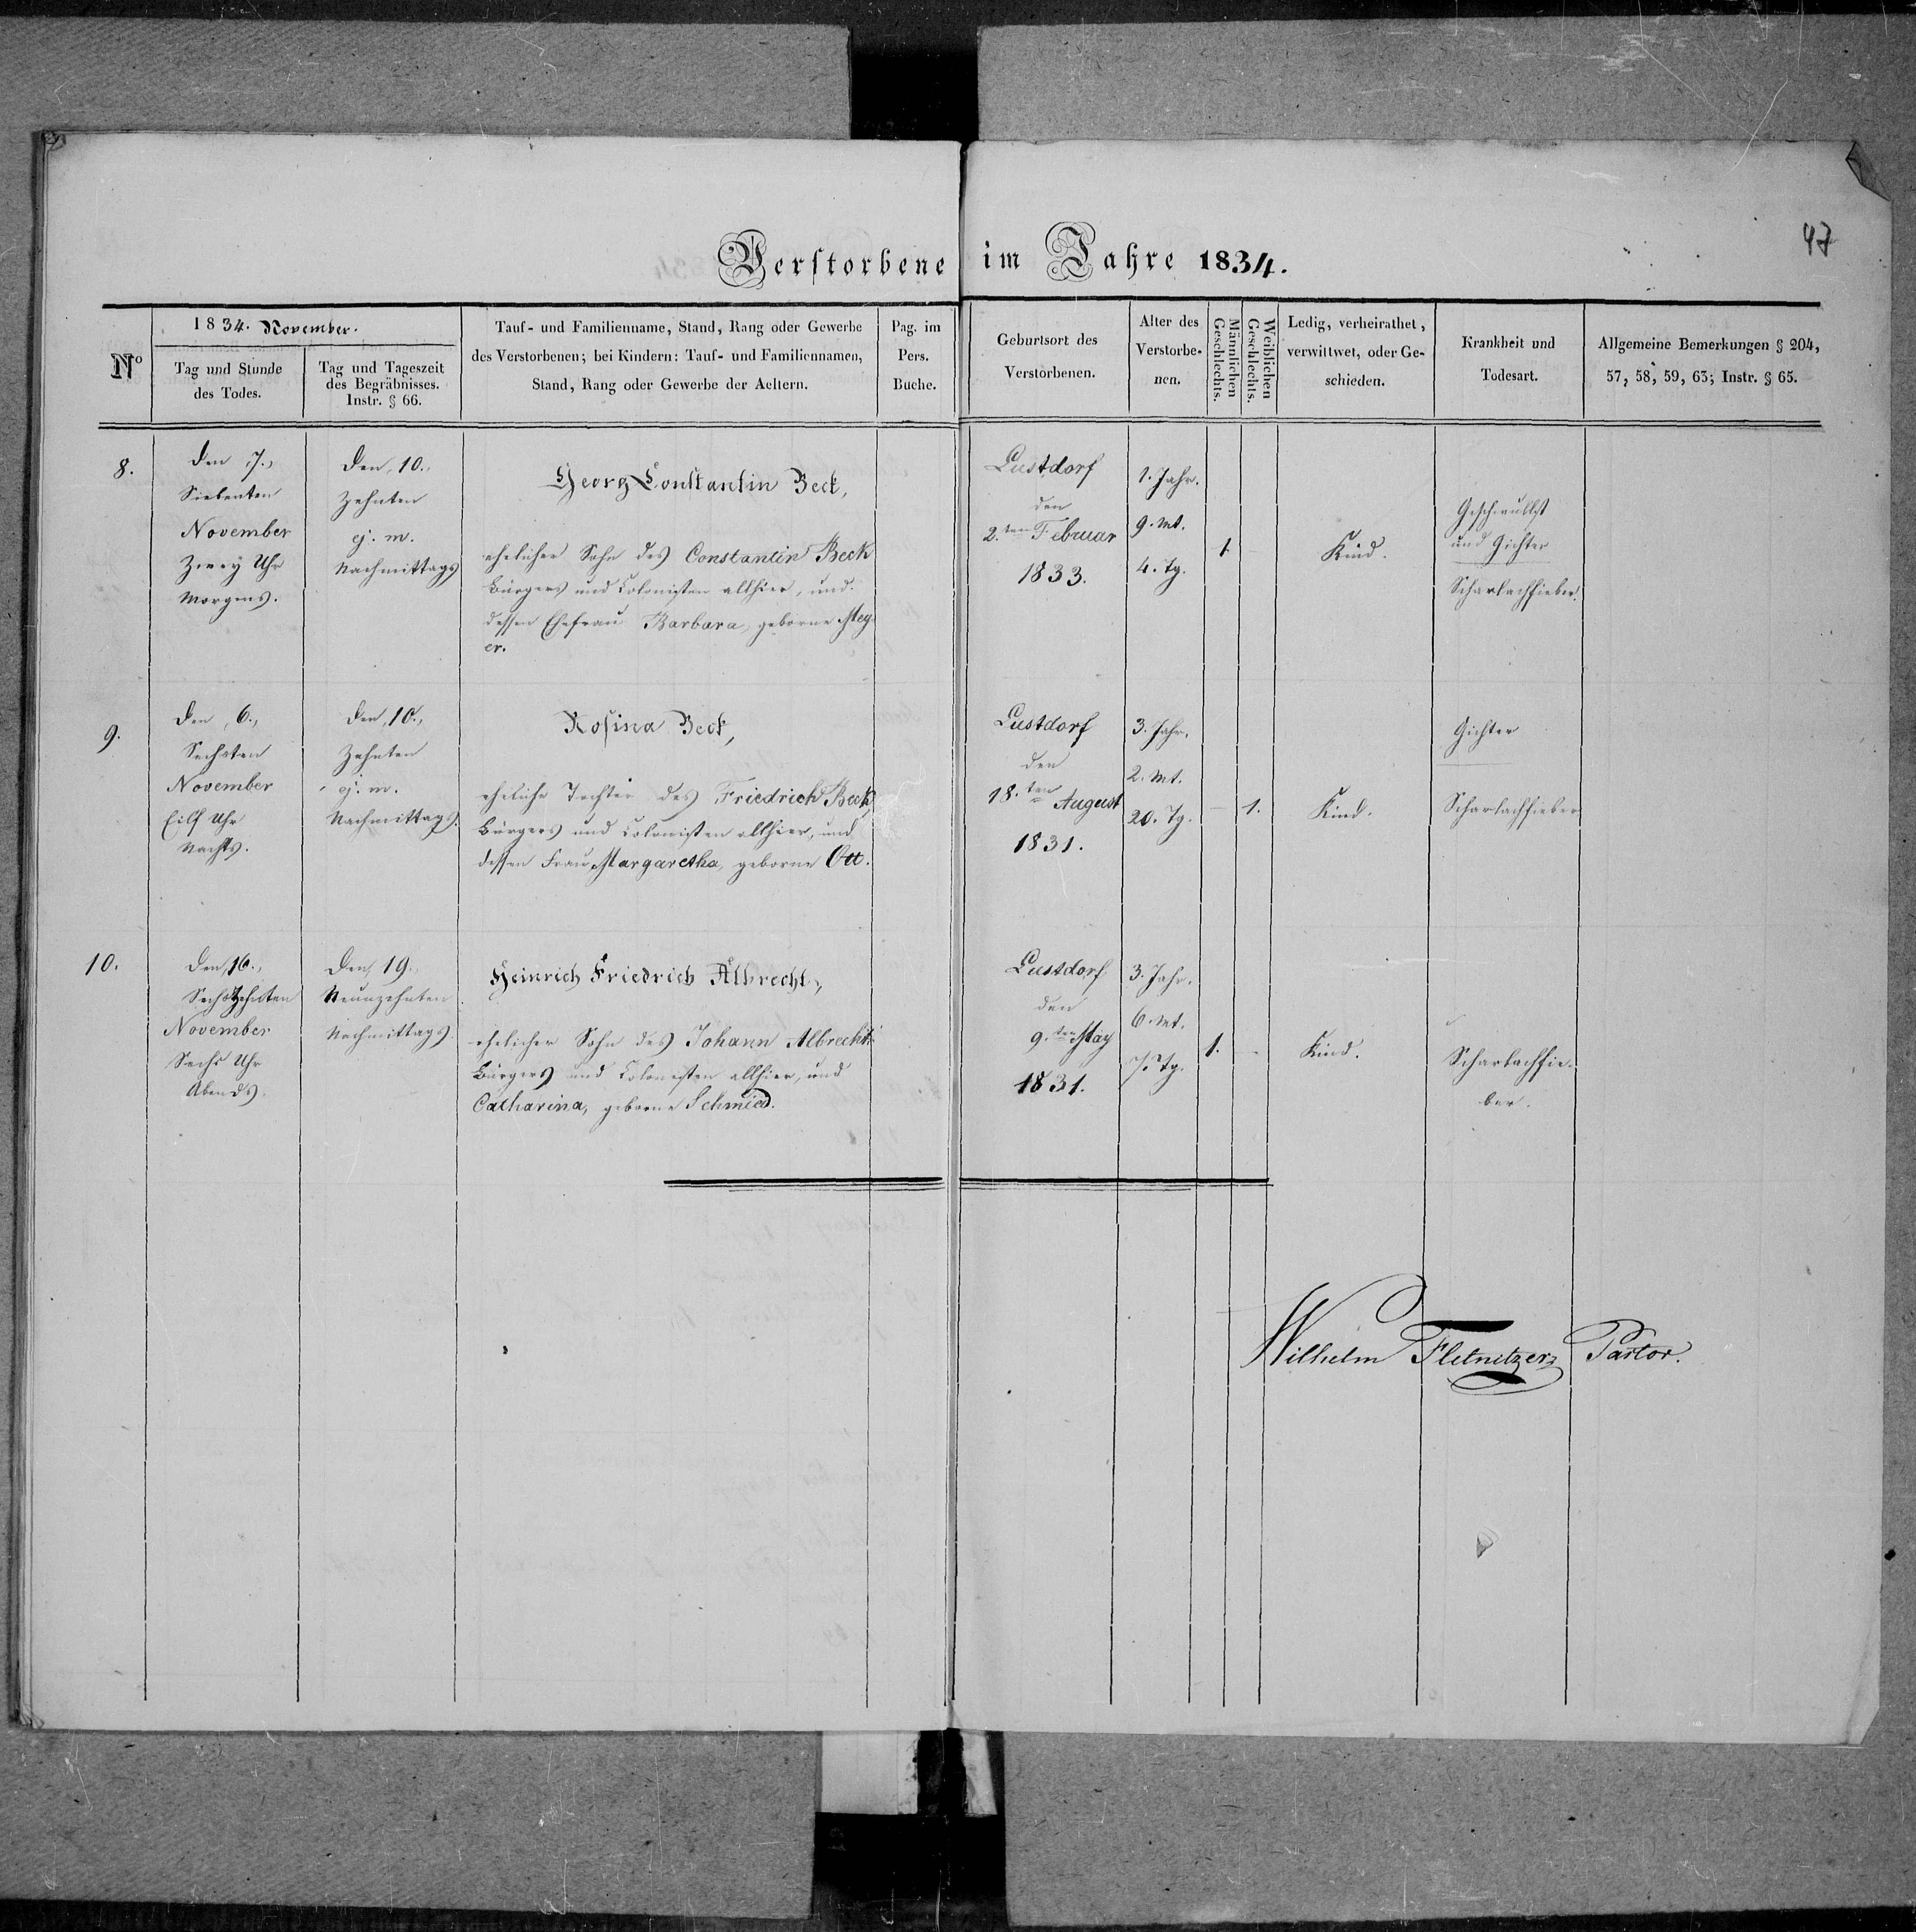 47
Verstorbene im Jahre 1834.
Nº
1834. November.
Tag und Stunde
des Todes.
Tag und Tageszeit
des Begräbnisses.
Instr. § 66.
Tauf- und Familienname, Stand, Rang oder Gewerbe
des Verstorbenen; bei Kindern: Tauf- und Familiennamen,
Stand, Rang oder Gewerbe der Aeltern.
Pag. im
Pers.
Buche.
Geburtsort des
Verstorbenen.
Alter des
Verstorbe-
nen.
Männlichen
Geschlechts.
Weiblichen
Geschlechts.
Ledig, verheirathet,
verwittwet, oder Ge-
schieden.
Krankheit und
Todesart.
Allgemeine Bemerkungen § 204,
57, 58, 59, 63; Instr. § 65.
8.
Den 7.,
Siebenten
November
Zwey Uhr
Morgens.
Den, 10.,
Zehnten
ej. m.
Nachmittags
Georg Constantin Beck,
ehelicher Sohn des Constantin Beck
Bürgers und Colonisten allhier, und
dessen Ehefrau Barbara, geborne Mey-
er.
Lustdorf
den
2.ten Februar
1833.
1. Jahr.
9. Mt.
4. Tg.
1.
Kind.
Geschwullst
und Gichter
Scharlachfieber.
9.
Den, 6.,
Sechsten
November
Eilf Uhr
Nachts.
Den, 10.,
Zehnten
ej. m.
Nachmittags.
Rosina Beck,
eheliche Tochter des Friedrich Beck,
Bürgers und Colonisten allhier, und
dessen Frau Margaretha, geborne Ott.
Lustdorf
den
18.ten August
1831.
3. Jahr.
2. Mt.
20. Tg.
1.
Kind.
Gichter
Scharlachfieber
10.
Den, 16.,
Sechszehnten
November
Sechs Uhr
Abends.
Den, 19.,
Neunzehnten
Nachmittags.
Heinrich Friedrich Albrecht,
ehelicher Sohn des Johann Albrecht
Bürgers und Colonisten allhier, und
Catharina, geborne Schmied.
Lustdorf
den
9.ten May
1831.
3. Jahr.
6. Mt.
7. Tg.
1.
Kind.
Scharlachfie-
ber.
Wilhelm Fletnitzer, Pastor.